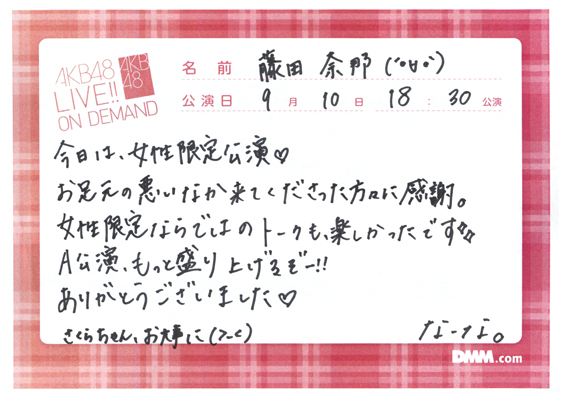 AKB48
LIVE!!
ON DEMAND
AKB
48
名前 藤田 奈那 (°∀°)
公演日 9月 10日 18:30 公演
今日は、女性限定公演♡
お足元の悪いなか来てくださった方々に感謝。
女性限定ならではのトークも、楽しかったです☆
A公演、もっと盛り上げるぞー!!
ありがとうございました♡
さくらちゃん、お大事に(>_<)
なーな。
DMM.com